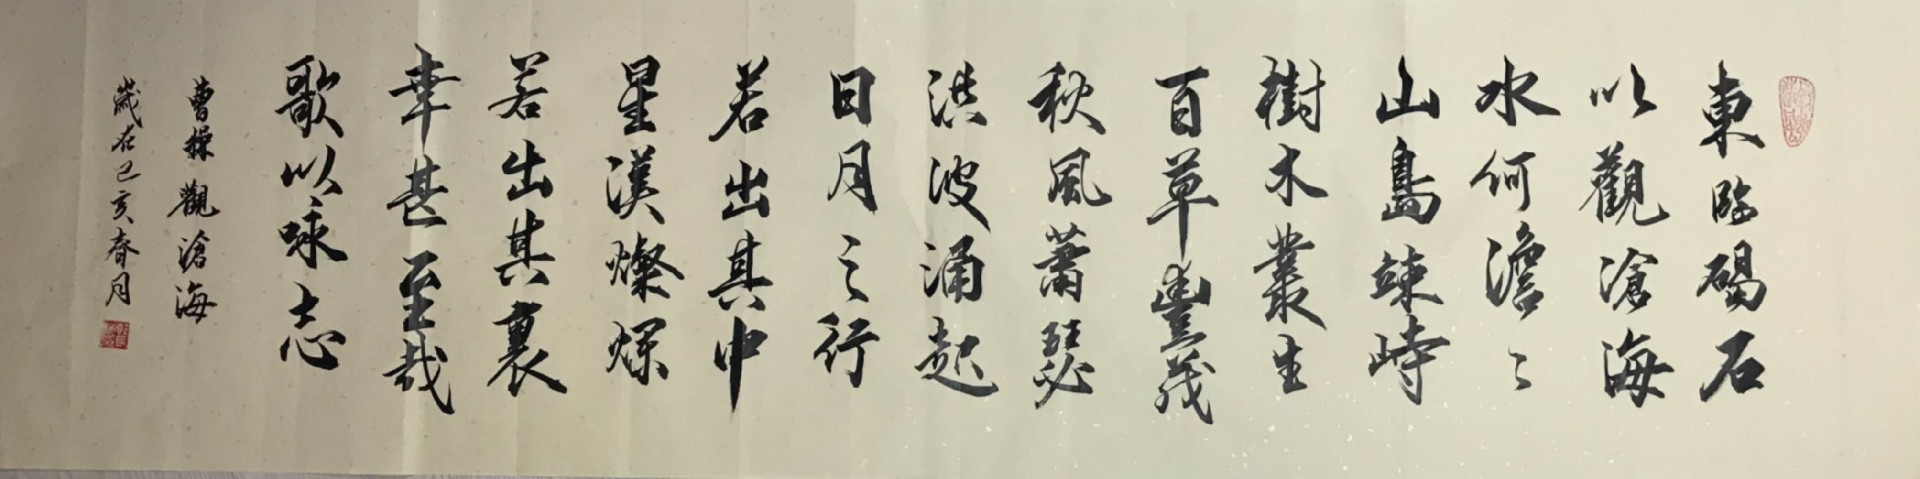 東臨碣石
以觀滄海
水何澹〻
山島竦峙
樹木叢生
百草豐茂
秋風蕭瑟
洪波涌起
日月之行
若出其中
星漢燦爛
若出其裏
幸甚至哉
歌以咏志
曹操觀滄海
歲在己亥春月